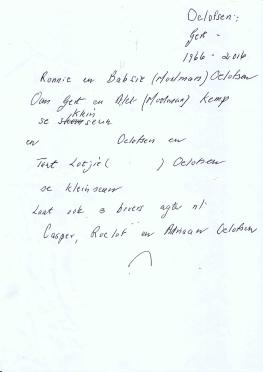 Oelofsen:
Gert -
1966 - 2016
Ronnie en Babsie (Mostmans) Oelofsen
Oom Gert en (Mostmans) Kemp
se kleinseun
en Oelofsen en
Tant Lotjie ( ) Oelofsen
se kleinseun
Laat ook 3 broers agter nl:
Casper, Roelof en Adriaan Oelofsen